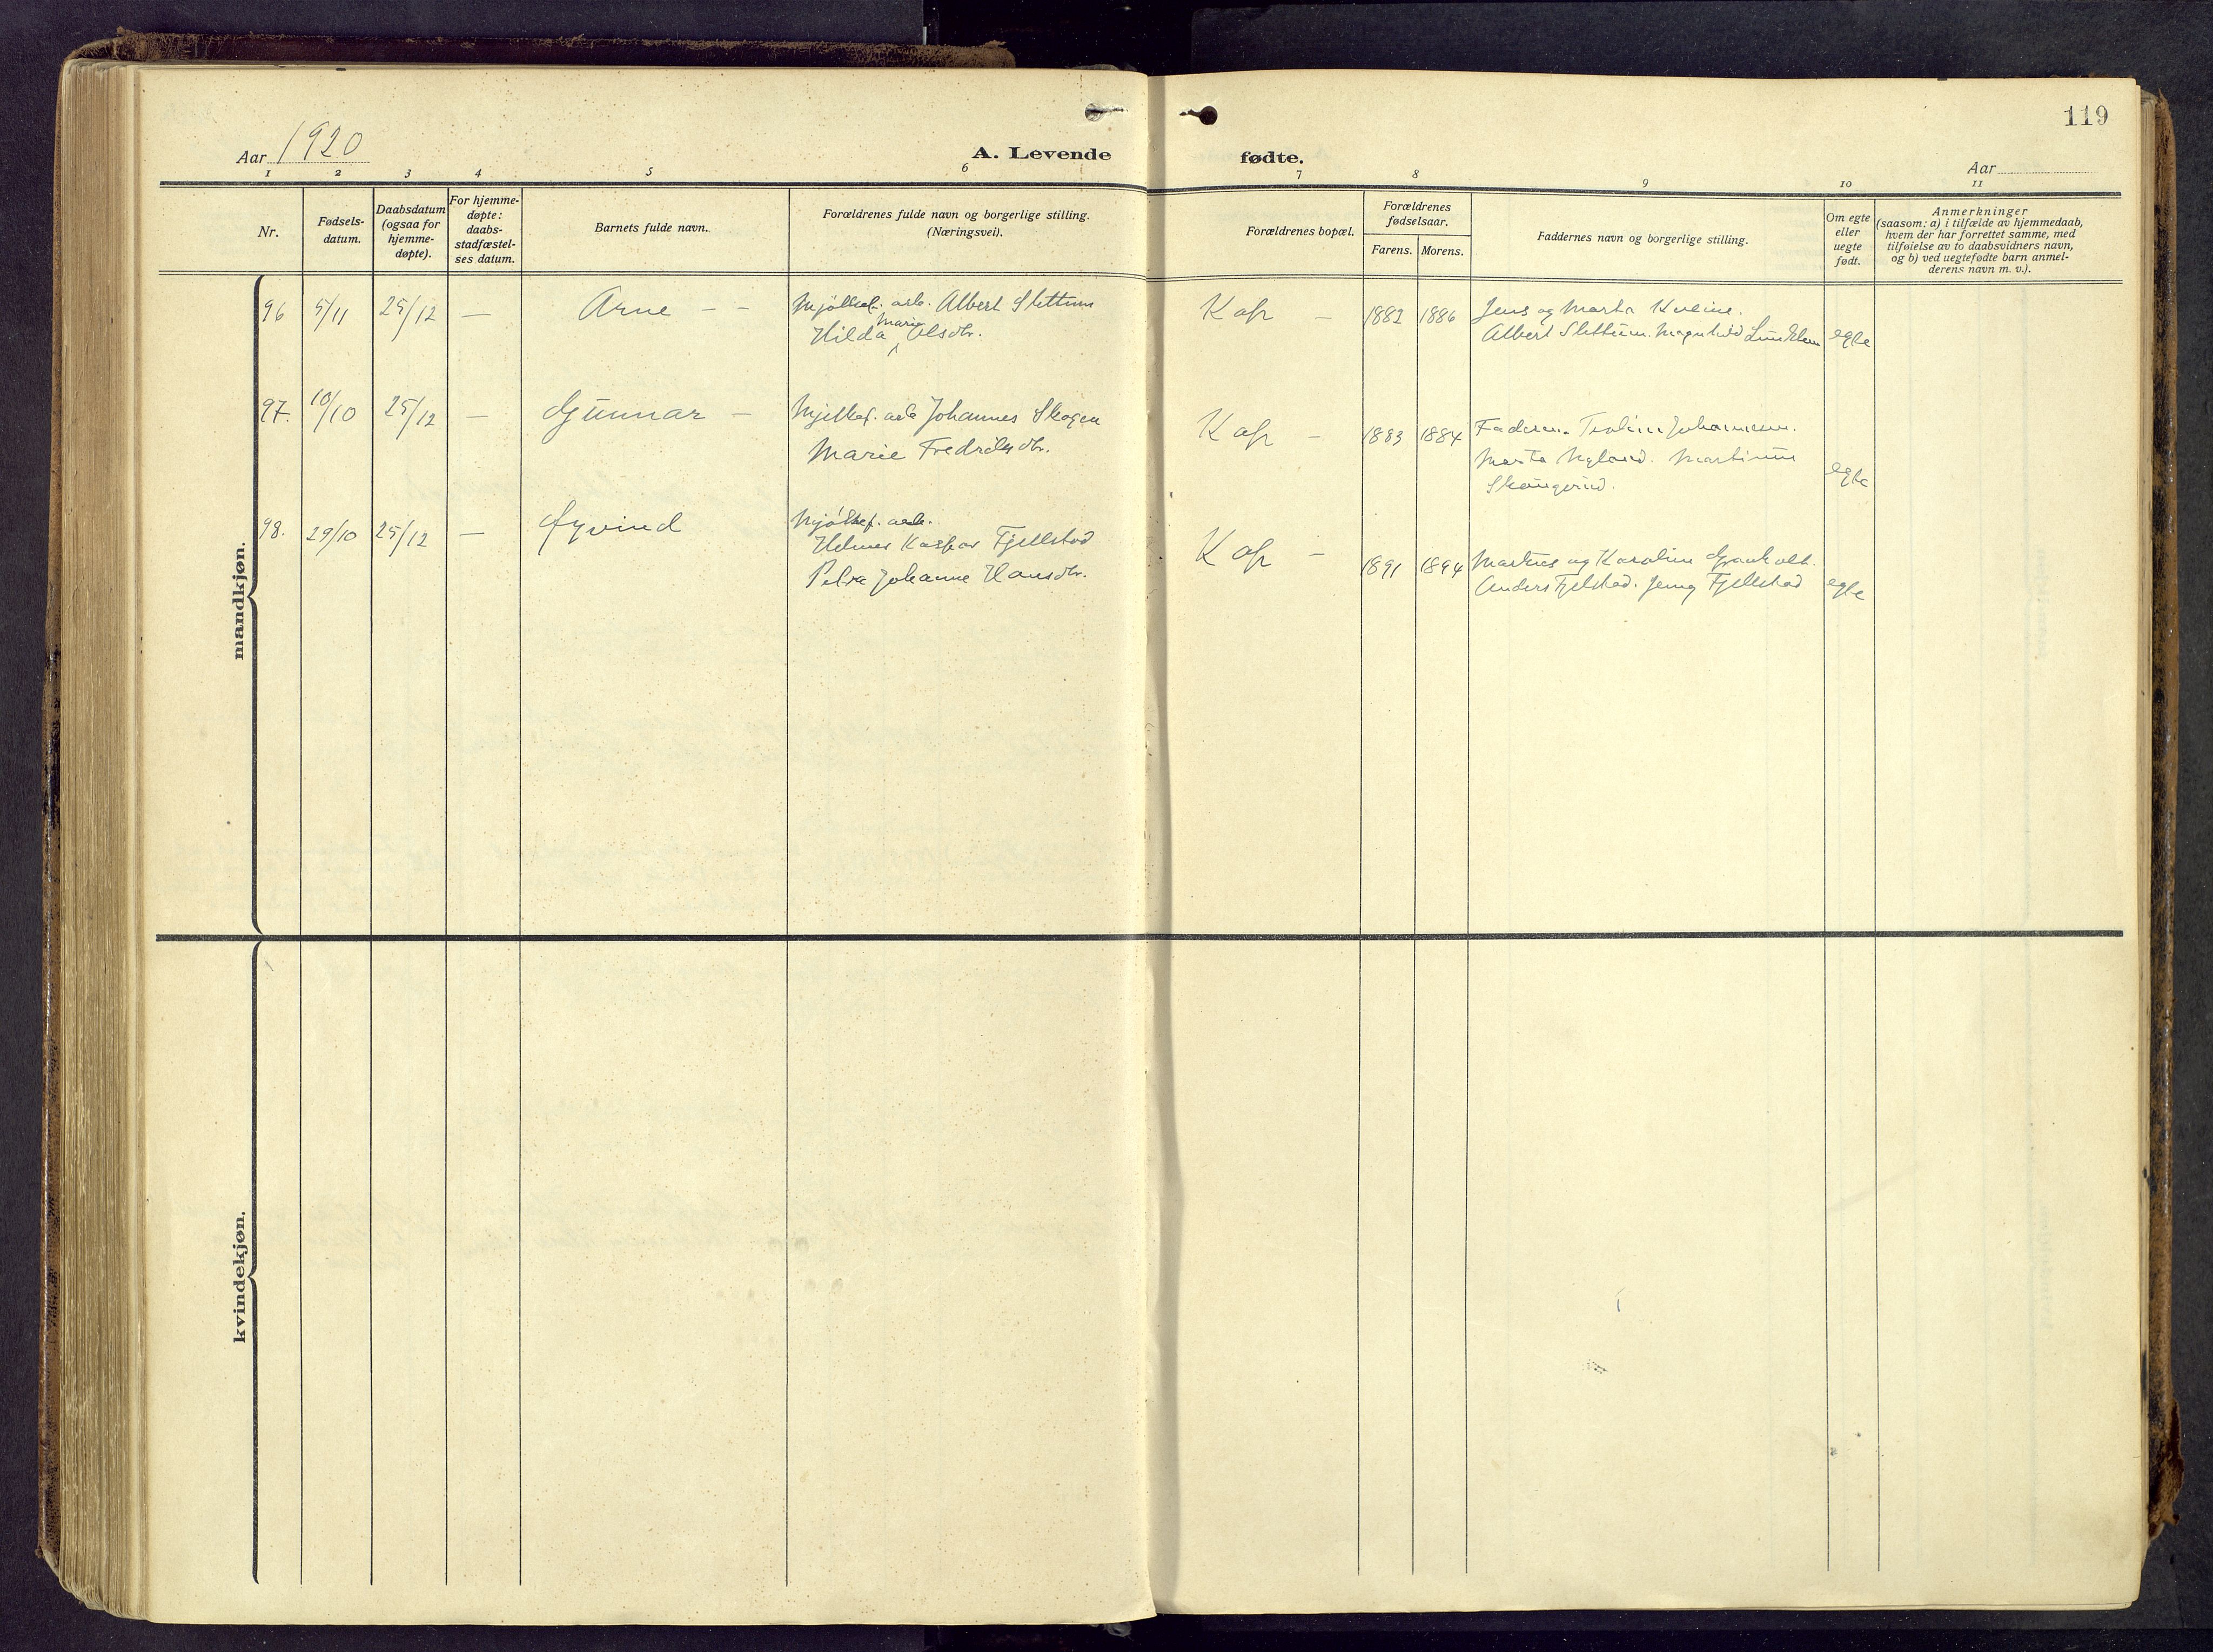 119
Aar 1920
A. Levende fødte.
Aar
1 2 3 4 5 6 7 8 9 10 11
Nr.
Fødsels-
datum.
Daabsdatum
(ogsaa for
hjemme-
døpte).
For hjemme-
døpte:
daabs-
stadfæstel-
ses datum.
Barnets fulde navn.
Forældrenes fulde navn og borgerlige stilling.
(Næringsvei).
Forældrenes bopæl.
Forældrenes
fødselsaar.
Farens. Morens.
Faddernes navn og borgerlige stilling.
Om egte
eller
uegte
født.
Anmerkninger
(saasom: a) i tilfælde av hjemmedaab,
hvem der har forrettet samme, med
tilføielse av to daabsvidners navn,
og b) ved uegtefødte barn anmel-
derens navn m. v.).
mandkjøn.
96 5/11 25/12 — Arne — —
Mjölkef. arb. Albert Slettum
Hilda Marie Olsdtr.
Kap — 1882 1886
Jens og Marta Kveine.
Albert Slettum. Magnhild
egte
97. 10/10 25/12 — Gunnar —
Mjelkef. arb Johannes Skogen
Marie Fredriksdtr.
Kap — 1883 1884
Faderen. Johannesen.
Marta Nyland. Martinus
egte
98. 29/10 25/12 — Øyvind
Mjölkef. arb.
Helmer Kaspar Fjellstad
Petra Johanne Hansdtr.
Kap — 1891 1894
Markus og Karoline Granholt.
Anders Fjelstad. Jenny Fjellstad
egte
kvindekjøn.